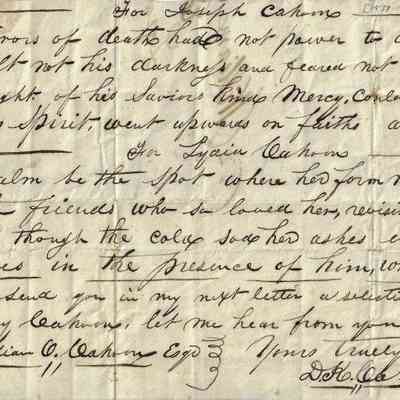 For Joseph Cahoon
rrors of death had not power to
lt not his darkness and feared not
ght of his Saviors kind Mercy, Could
s Spirit, went upwards on faiths
For Lydia Cahoon
alm be the spot where her form
friends who so loved her, revisi
though the cold sod her ashes
es in the presence of him, w
send you in my next letter a selecti
y Cahoon, let me hear from you
lian O. Cahoon Esqr Yours Truely
D.K. Ca